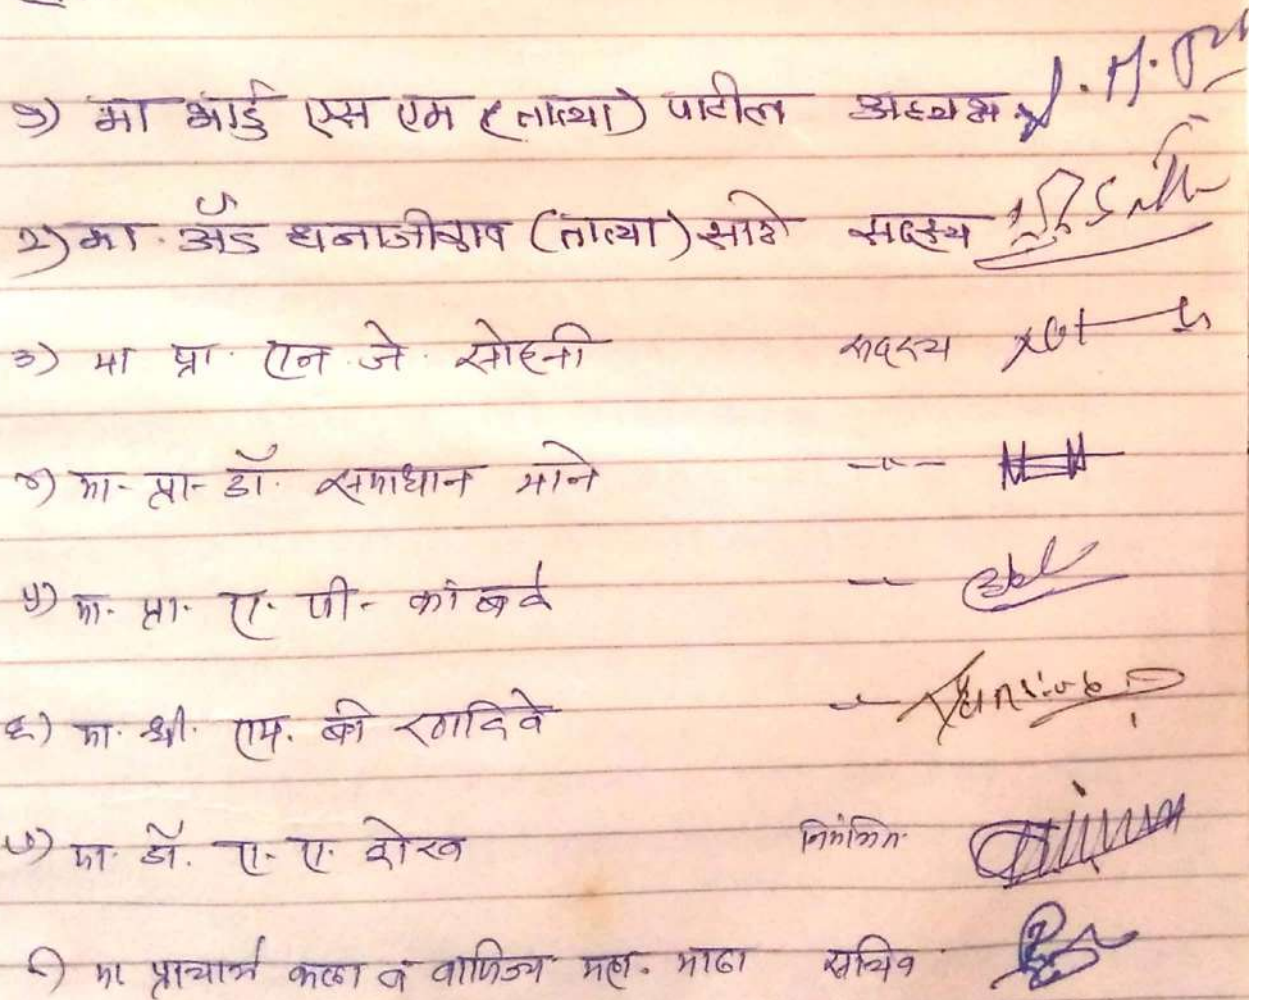 १) मा भाई एस एम (तात्या) पाटील अध्यक्ष
२) मा. अ‍ॅड धनाजीराव (तात्या) साठे सदस्य
३) मा प्रा. एन. जे. सोहनी सदस्य
४) मा- प्रा- डॉ. समाधान माने -〃-
५) मा. प्रा. ए. पी-
६) मा. श्री. एम. बी रणदिवे
७) मा. डॉ. ए. ए. शेख निमंत्रित
८) मा प्राचार्य कला व वाणिज्य महा. माढा सचिव